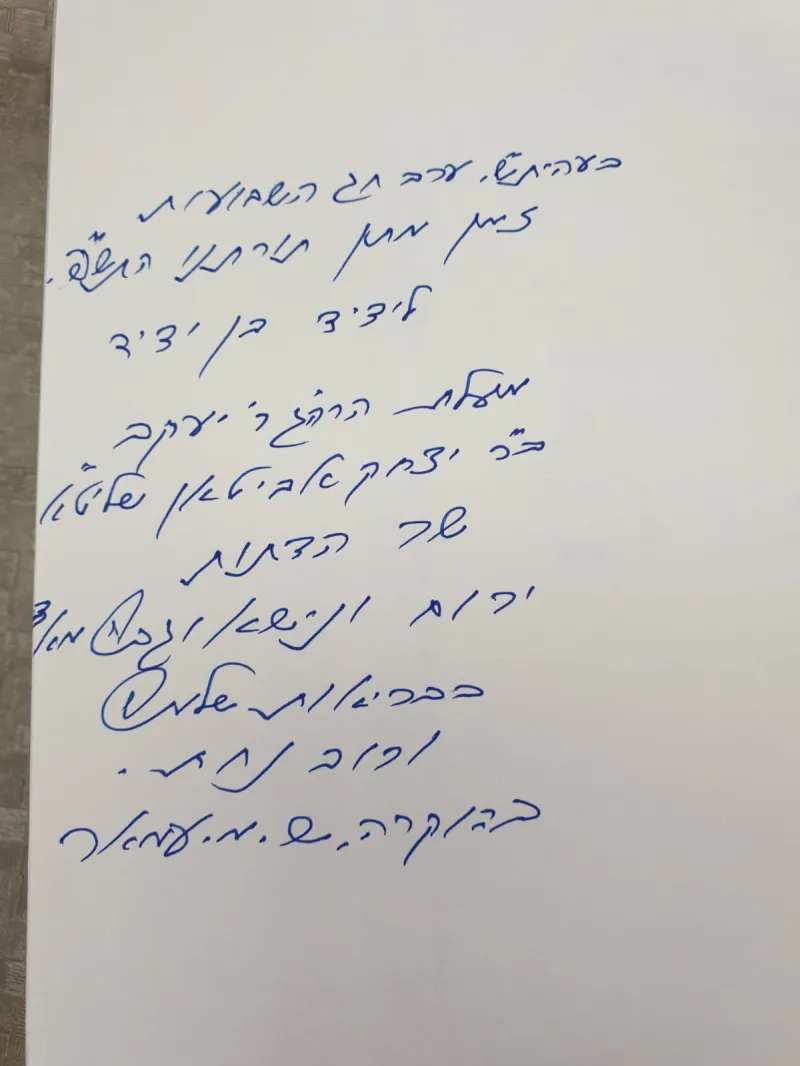 בעהית"ש, ערב חג השבועות
זמן מתן תורתנו התש"פ.
לידיד בן ידיד
מעלת הרה"ג ר' יעקב
ב"ר יצחק אביטאן שליט"א
שר הדתות
ירום ונישא וגבה מאד
בבריאות שלמה
ורוב נחת.
בהוקרה, ש.מ.עמאר